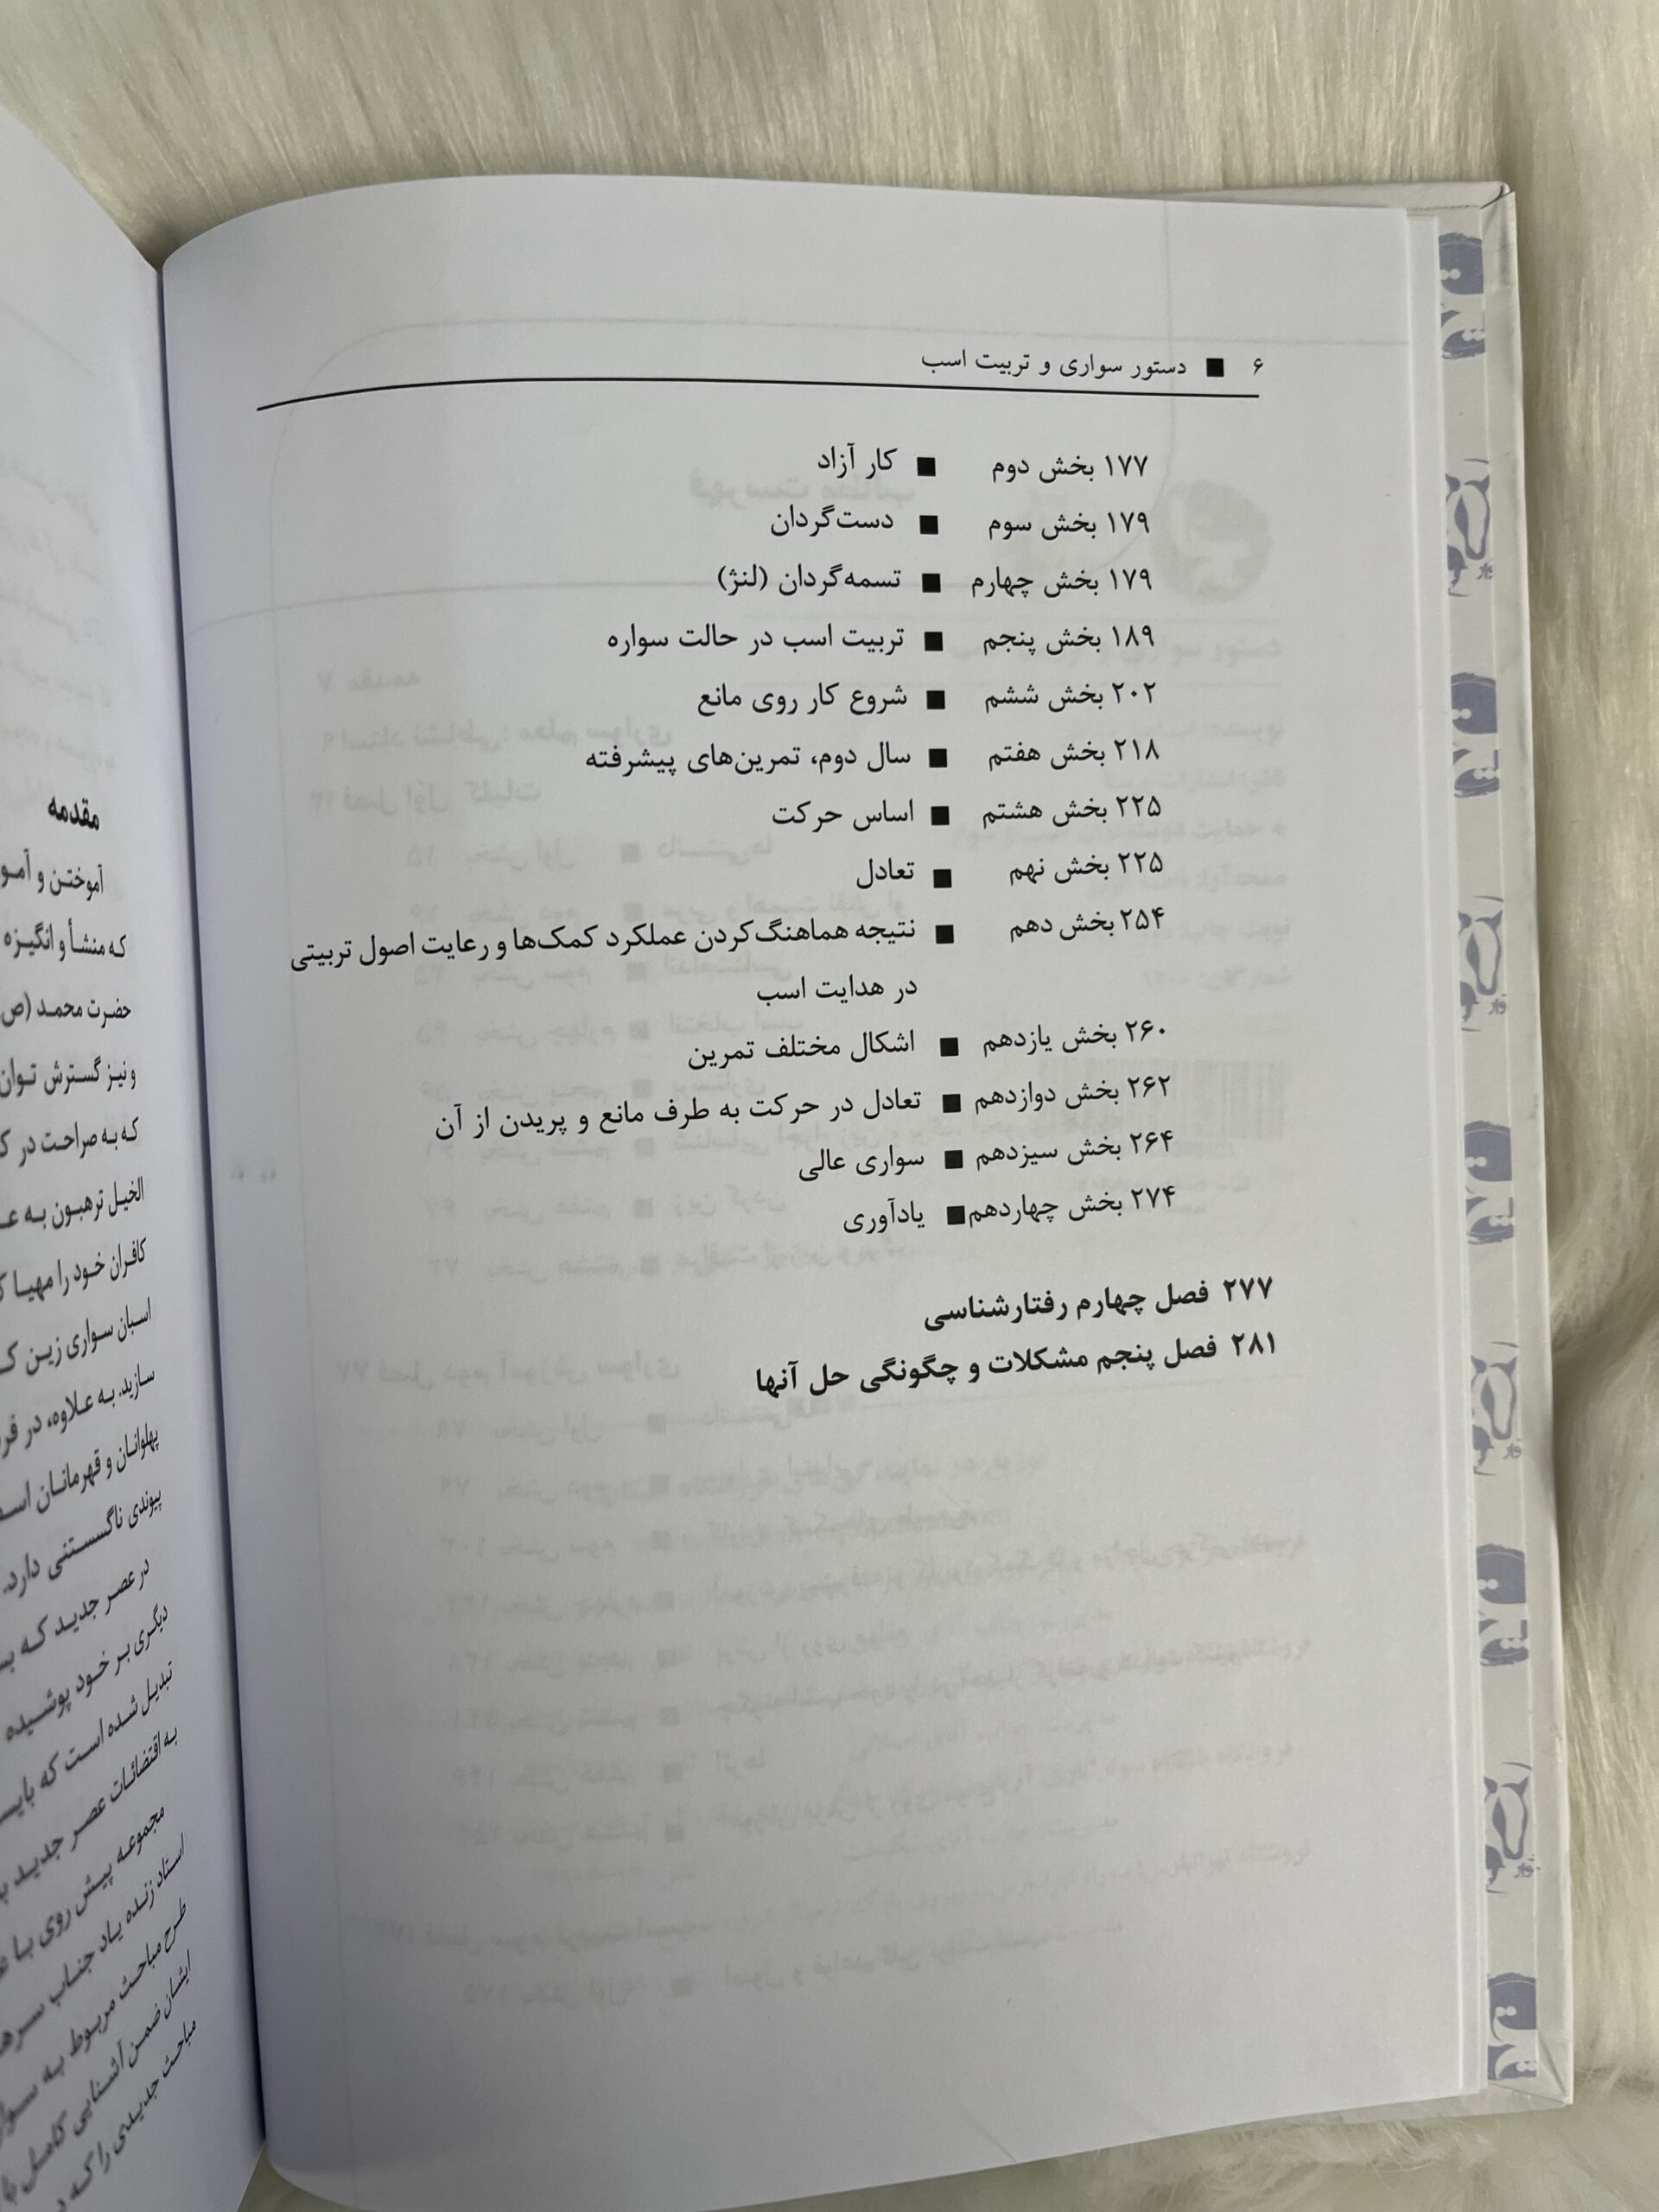 ۶ ■ دستور سواری و تربیت اسب
۱۷۷ بخش دوم ■ کار آزاد
۱۷۹ بخش سوم ■ دست‌گردان
۱۷۹ بخش چهارم ■ تسمه‌گردان (لنژ)
۱۸۹ بخش پنجم ■ تربیت اسب در حالت سواره
۲۰۲ بخش ششم ■ شروع کار روی مانع
۲۱۸ بخش هفتم ■ سال دوم، تمرین‌های پیشرفته
۲۲۵ بخش هشتم ■ اساس حرکت
۲۲۵ بخش نهم ■ تعادل
۲۵۴ بخش دهم ■ نتیجه هماهنگ‌کردن عملکرد کمک‌ها و رعایت اصول تربیتی
در هدایت اسب
۲۶۰ بخش یازدهم ■ اشکال مختلف تمرین
۲۶۲ بخش دوازدهم ■ تعادل در حرکت به طرف مانع و پریدن از آن
۲۶۴ بخش سیزدهم ■ سواری عالی
۲۷۴ بخش چهاردهم ■ یادآوری
۲۷۷ فصل چهارم رفتارشناسی
۲۸۱ فصل پنجم مشکلات و چگونگی حل آنها
مقدمه
آموختن و
که منشأ و انگیزه
حضرت محمد (ص
و نیز گسترش توان
که به صراحت در
الخیل ترهبون به
کافران خود را مهیا
اسبان سواری زین
سازید. به علاوه، در
پهلوانان و قهرمانان
پیوندی ناگسستنی دارد.
در عصر جدید که
دیگری بر خود پوشیده
تبدیل شده است که
به اقتضائات عصر جدید
مجموعه پیش روی با
استاد زنده یاد جناب
طرح مباحث مربوط به
ایشان ضمن آشنایی کامل
مباحث جدیدی را که